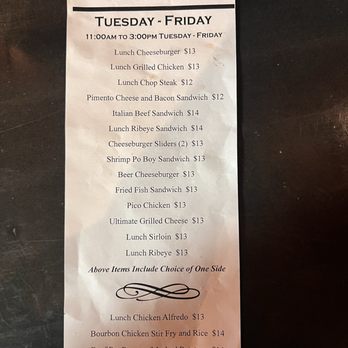 TUESDAY - FRIDAY
11:00AM TO 3:00PM TUESDAY - FRIDAY
Lunch Cheeseburger $13
Lunch Grilled Chicken $13
Lunch Chop Steak $12
Pimento Cheese and Bacon Sandwich $12
Italian Beef Sandwich $14
Lunch Ribeye Sandwich $14
Cheeseburger Sliders (2) $13
Shrimp Po Boy Sandwich $13
Beer Cheeseburger $13
Fried Fish Sandwich $13
Pico Chicken $13
Ultimate Grilled Cheese $13
Lunch Sirloin $13
Lunch Ribeye $13
Above Items Include Choice of One Side
Lunch Chicken Alfredo $13
Bourbon Chicken Stir Fry and Rice $14